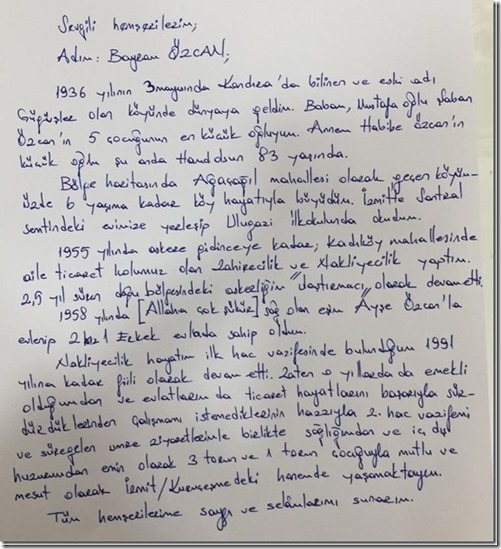 Sevgili hemşerilerim;
Adım: Bayram ÖZCAN;
1936 yılının 3 mayısında Kandıra'da bilinen ve eski adı
olan köyünde dünyaya geldim. Babam, Mustafa oğlu Şaban
Özcan'ın 5 çocuğunun en küçük oğluyum. Annem Habibe Özcan'ın
küçük oğlu şu anda Hamdolsun 83 yaşında.
Bölge haritasında Ağaçağıl mahallesi olarak geçen köyü-
müzde 6 yaşıma kadar köy hayatıyla büyüdüm. İzmitte Santral
semtindeki evimize yerleşip Ulugazi ilkokulunda okudum.
1955 yılında askere gidinceye kadar; Kadıköy mahallesinde
aile ticaret kolumuz olan Zahirecilik ve Nakliyecilik yaptım.
2,5 yıl süren doğu bölgesindeki askerliğim "ulaştırmacı" olarak devam etti.
1958 yılında [Allaha çok şükür] sağ olan eşim Ayşe Özcan'la
evlenip 2 kız 1 Erkek evlada sahip oldum.
Nakliyecilik hayatım ilk hac vazifesinde bulunduğum 1991
yılına kadar fiili olarak devam etti. Zaten o yıllarda da emekli
olduğumdan ve evlatlarım da ticaret hayatlarını başarıyla sür-
dürdüklerinden çalışmamı istemediklerinin hazzıyla 2. hac vazifemi
ve süregelen umre ziyaretlerimle birlikte sağlığımdan ve iç dış
huzurumdan emin olarak 3 torun ve 1 torun çocuğuyla mutlu ve
mesut olarak İzmit/Kuruçeşme'deki hanemde yaşamaktayım.
Tüm hemşerilerime saygı ve selamlarımı sunarım.